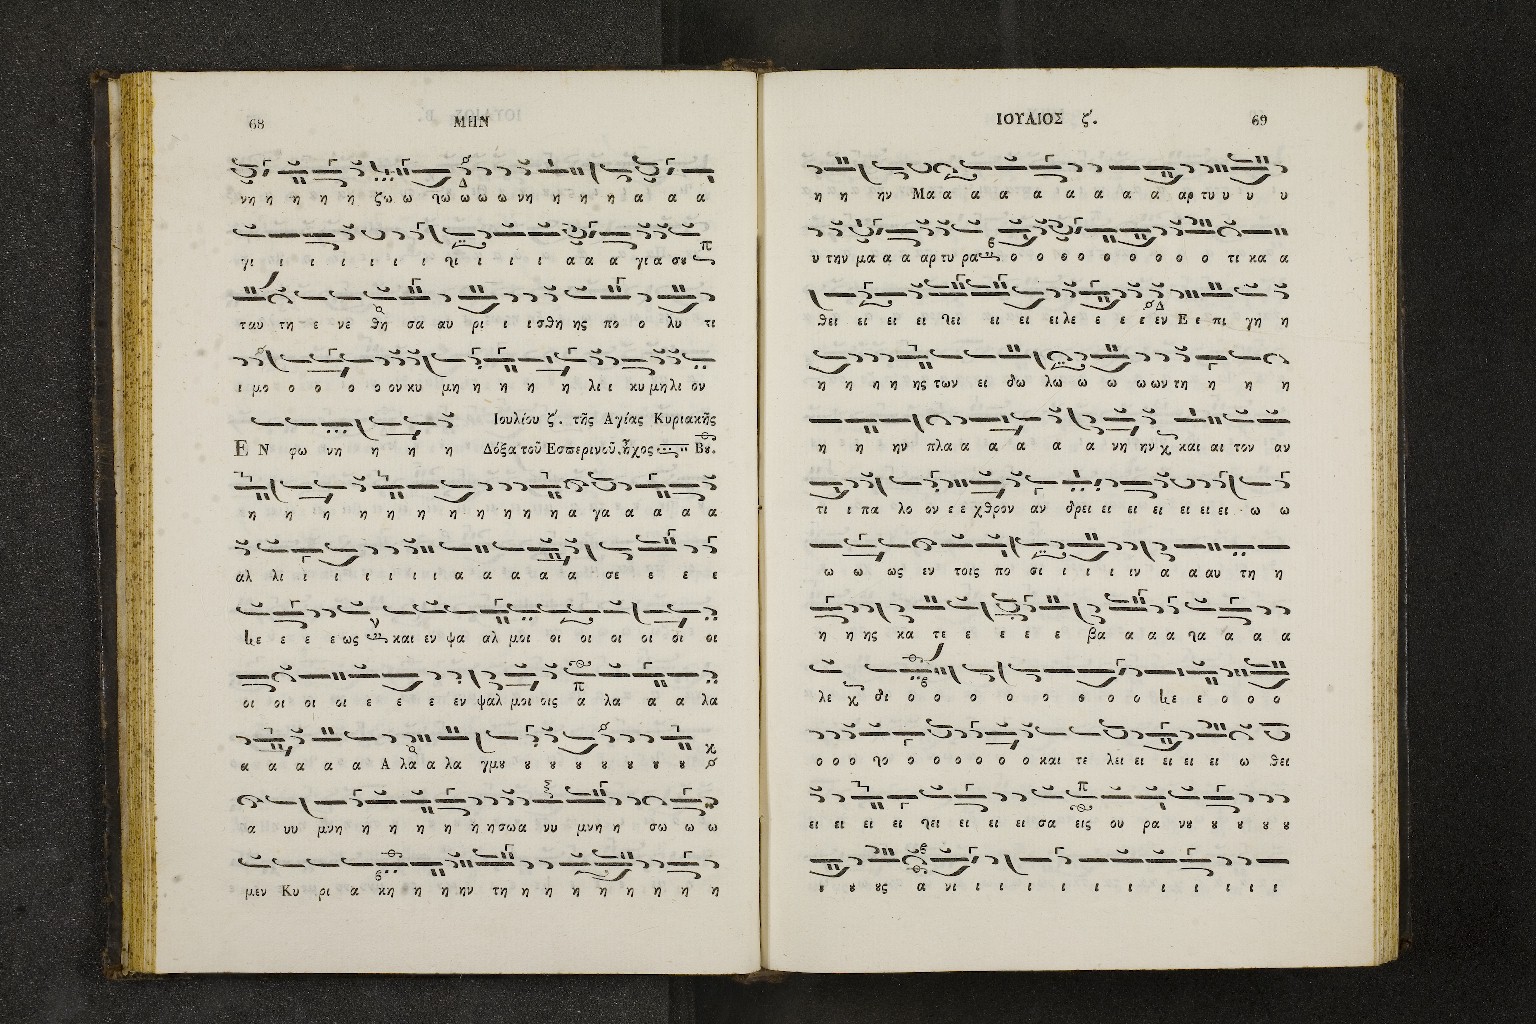 68
ΜΗΝ
νη η η η η ζω ω ηω ω ω ω νη η η η α α α
γι ι ι ι ι ι ηι ι ι ι α α α γι α σȣ
ταυ τη ε νε θη σα αυ ρι ι ι σθη ης πο ο λυ τι
ι μο ο ο ο ο ον κυ μη η η η η λι ι κυ μη λι ον
Ιουλίου ζ'. τῆς Αγίας Κυριακῆς
Ε Ν φω νη η η η Δόξα τοῦ Εσπερινοῦ, ἦχος Βȣ.
η η η η η η η η η η η α γα α α α α
αλ λι ι ι ι ι ι ι α α α α α σε ε ε ε
ε ε ε ε ως και εν ψα αλ μοι οι οι οι οι οι οι
οι οι οι οι ε ε ε εν ψαλ μοι οις α λα α α λα
α α α α α Α λα α λα γμȣ ȣ ȣ ȣ ȣ ȣ ȣ ȣ
α υυ μνη η η η η η η σωα νυ μνη η σω ω ω
μεν Κυ ρι α κη η η ην τη η η η η η η η η
ΙΟΥΛΙΟΣ ζ'.
69
η η ην Μα α α α α α α α α α αρ τυ υ υ υ
υ την μα α α αρ τυ ρα ο ο ο ο ο ο ο ο ο τι κα α
θει ει ει ει ηει ει ει ει λε ε ε ε εν Ε ε πι γη η
η η η η ης των ει δω λω ω ω ω ων τη η η η
η η ην πλα α α α α α νη ην και αι τον αν
τι ι πα λο ον ε ε χθρον αν δρει ει ει ει ει ει ει ω ω
ω ω ως εν τοις πο σι ι ι ι ιν α α αυ τη η
η η ης κα τε ε ε ε ε βα α α α ηα α α α
λε δι ο ο ο ο ο ο ο ο ε ε ο ο ο
ο ο ο ηο ο ο ο ο ο ο και τε λει ει ει ει ει ω θει
ει ει ει ει ηει ει ει ει σα εις ου ρα νȣ ȣ ȣ ȣ
ȣ ȣ ȣς α νι ι ι ι ι ι ι ι ι ι ι ι ι